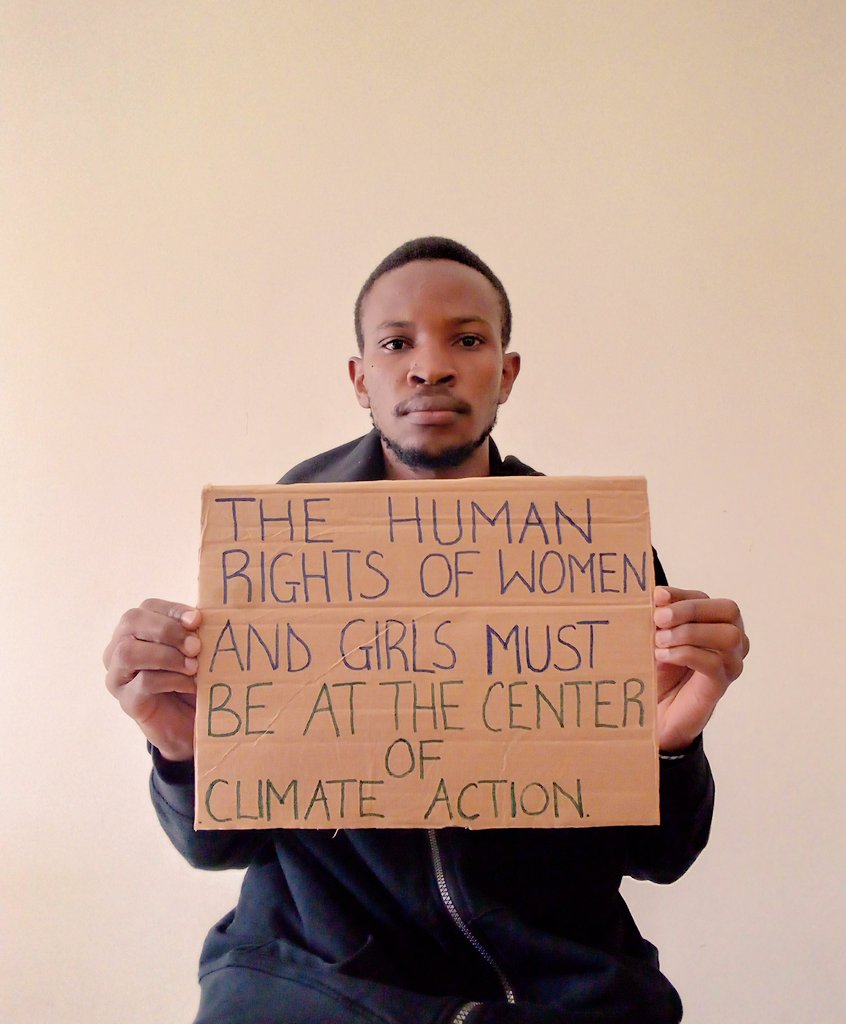 THE HUMAN
RIGHTS OF WOMEN
AND GIRLS MUST
BE AT THE CENTER
OF
CLIMATE ACTION.